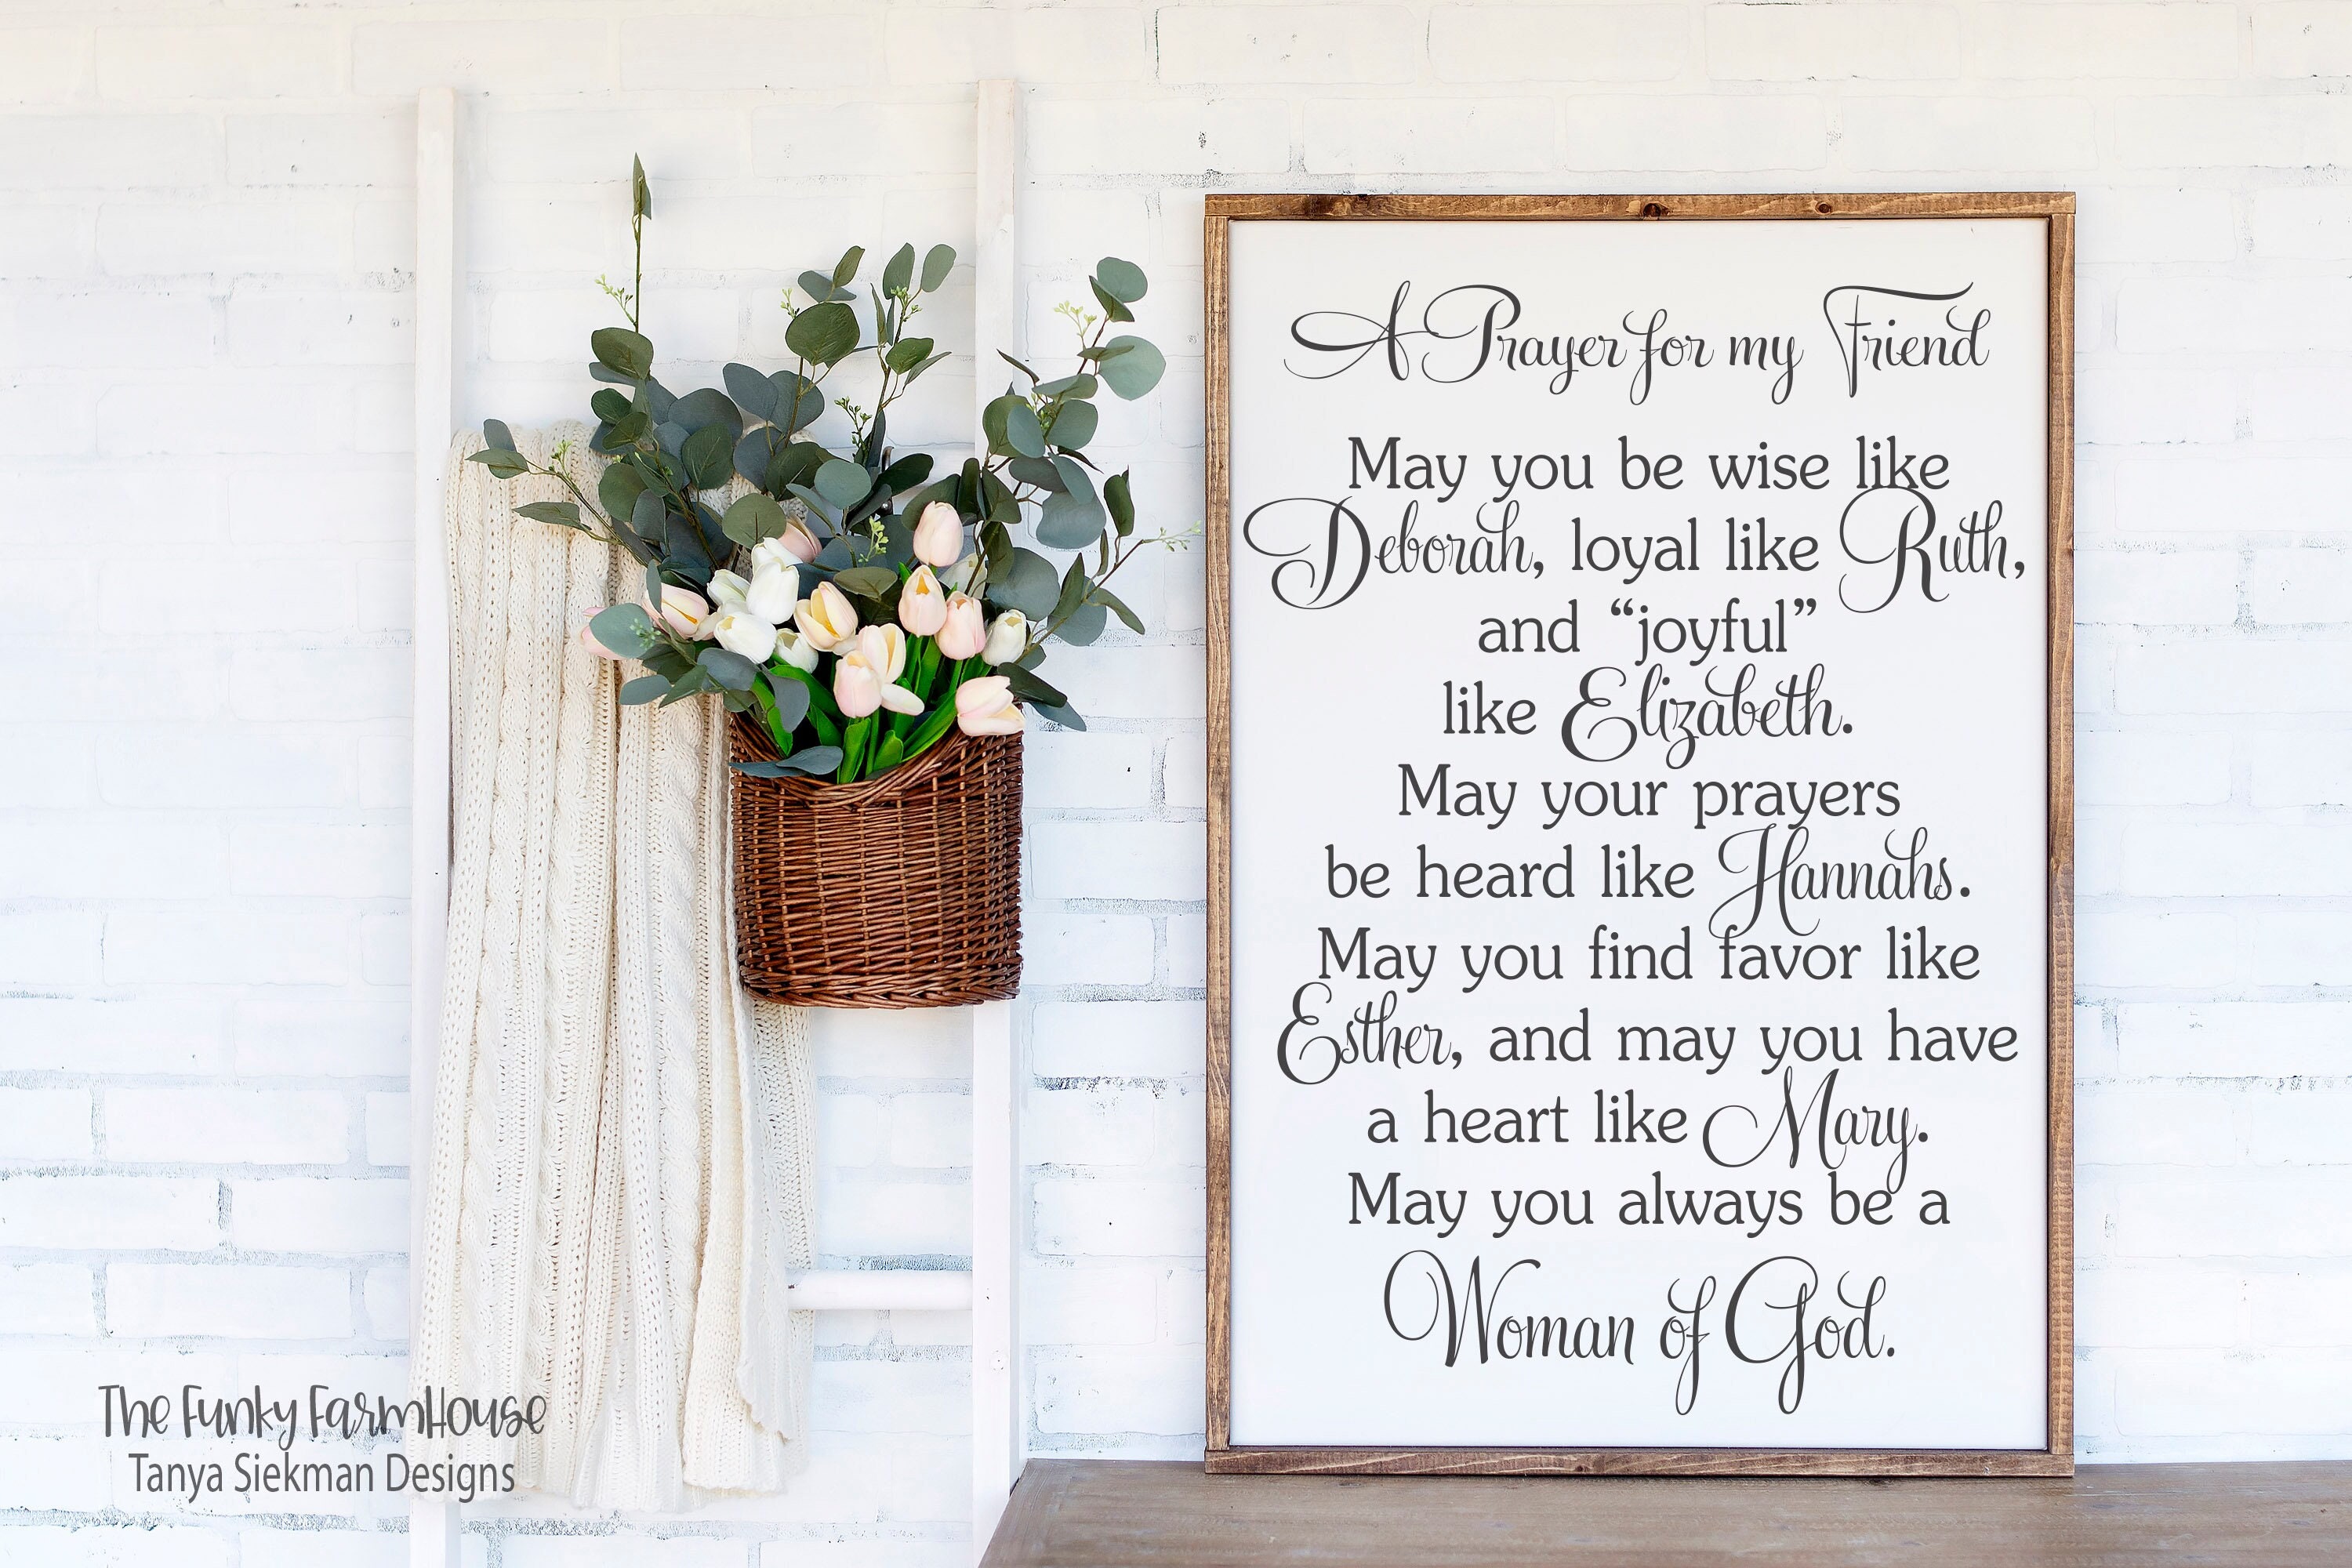 A Prayer for my Friend
May you be wise like
Deborah, loyal like Ruth,
and “joyful”
like Elizabeth.
May your prayers
be heard like Hannahs.
May you find favor like
Esther, and may you have
a heart like Mary.
May you always be a
Woman of God.
The Funky Farmhouse
Tanya Siekman Designs